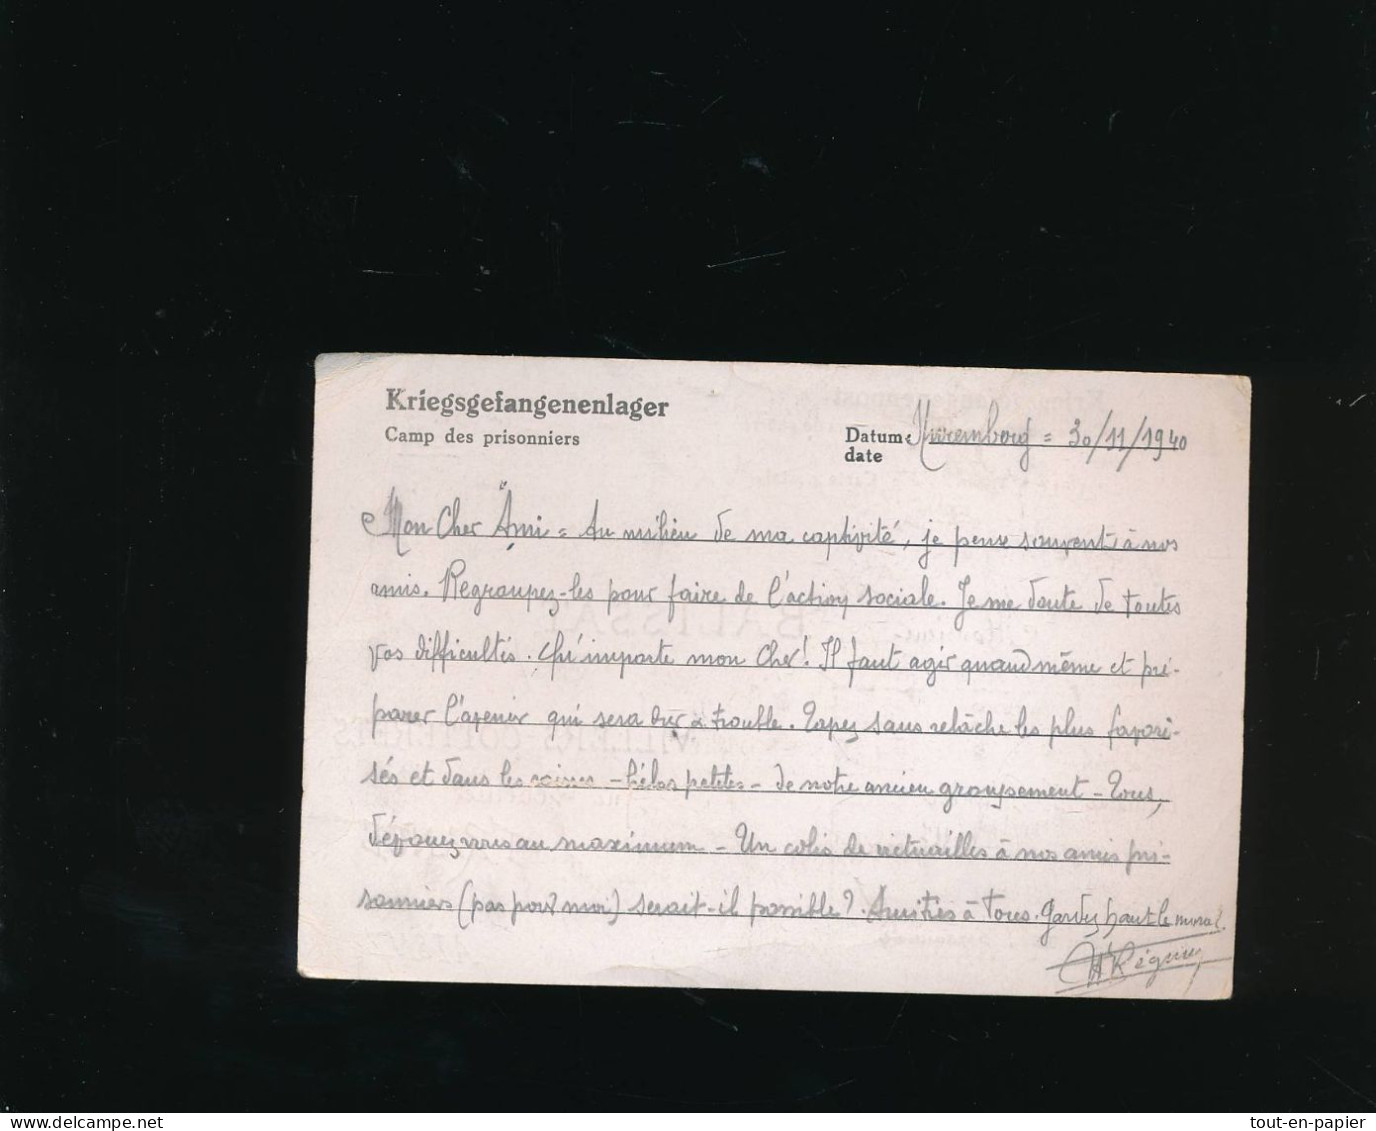 Kriegsgefangenenlager
Camp des prisonniers
Datum:
date
Nuremberg = 30/11/1940
Mon Cher Ami = Au milieu de ma captivité, je pense souvent à nos
amis. Regroupez-les pour faire de l'action sociale. Je me doute de toutes
vos difficultés. Qu'importe mon Cher! Il faut agir quand même et pré-
parer l'avenir qui sera dur & trouble. Tapez sans relâche les plus favori-
sés et dans les caisses - hélas petites - de notre ancien groupement - Tous,
dévouez vous au maximum - Un colis de victuailles à nos amis pri-
sonniers (pas pour moi) serait-il possible? Amitiés à tous. Gardez haut le moral.
tout-en-papier